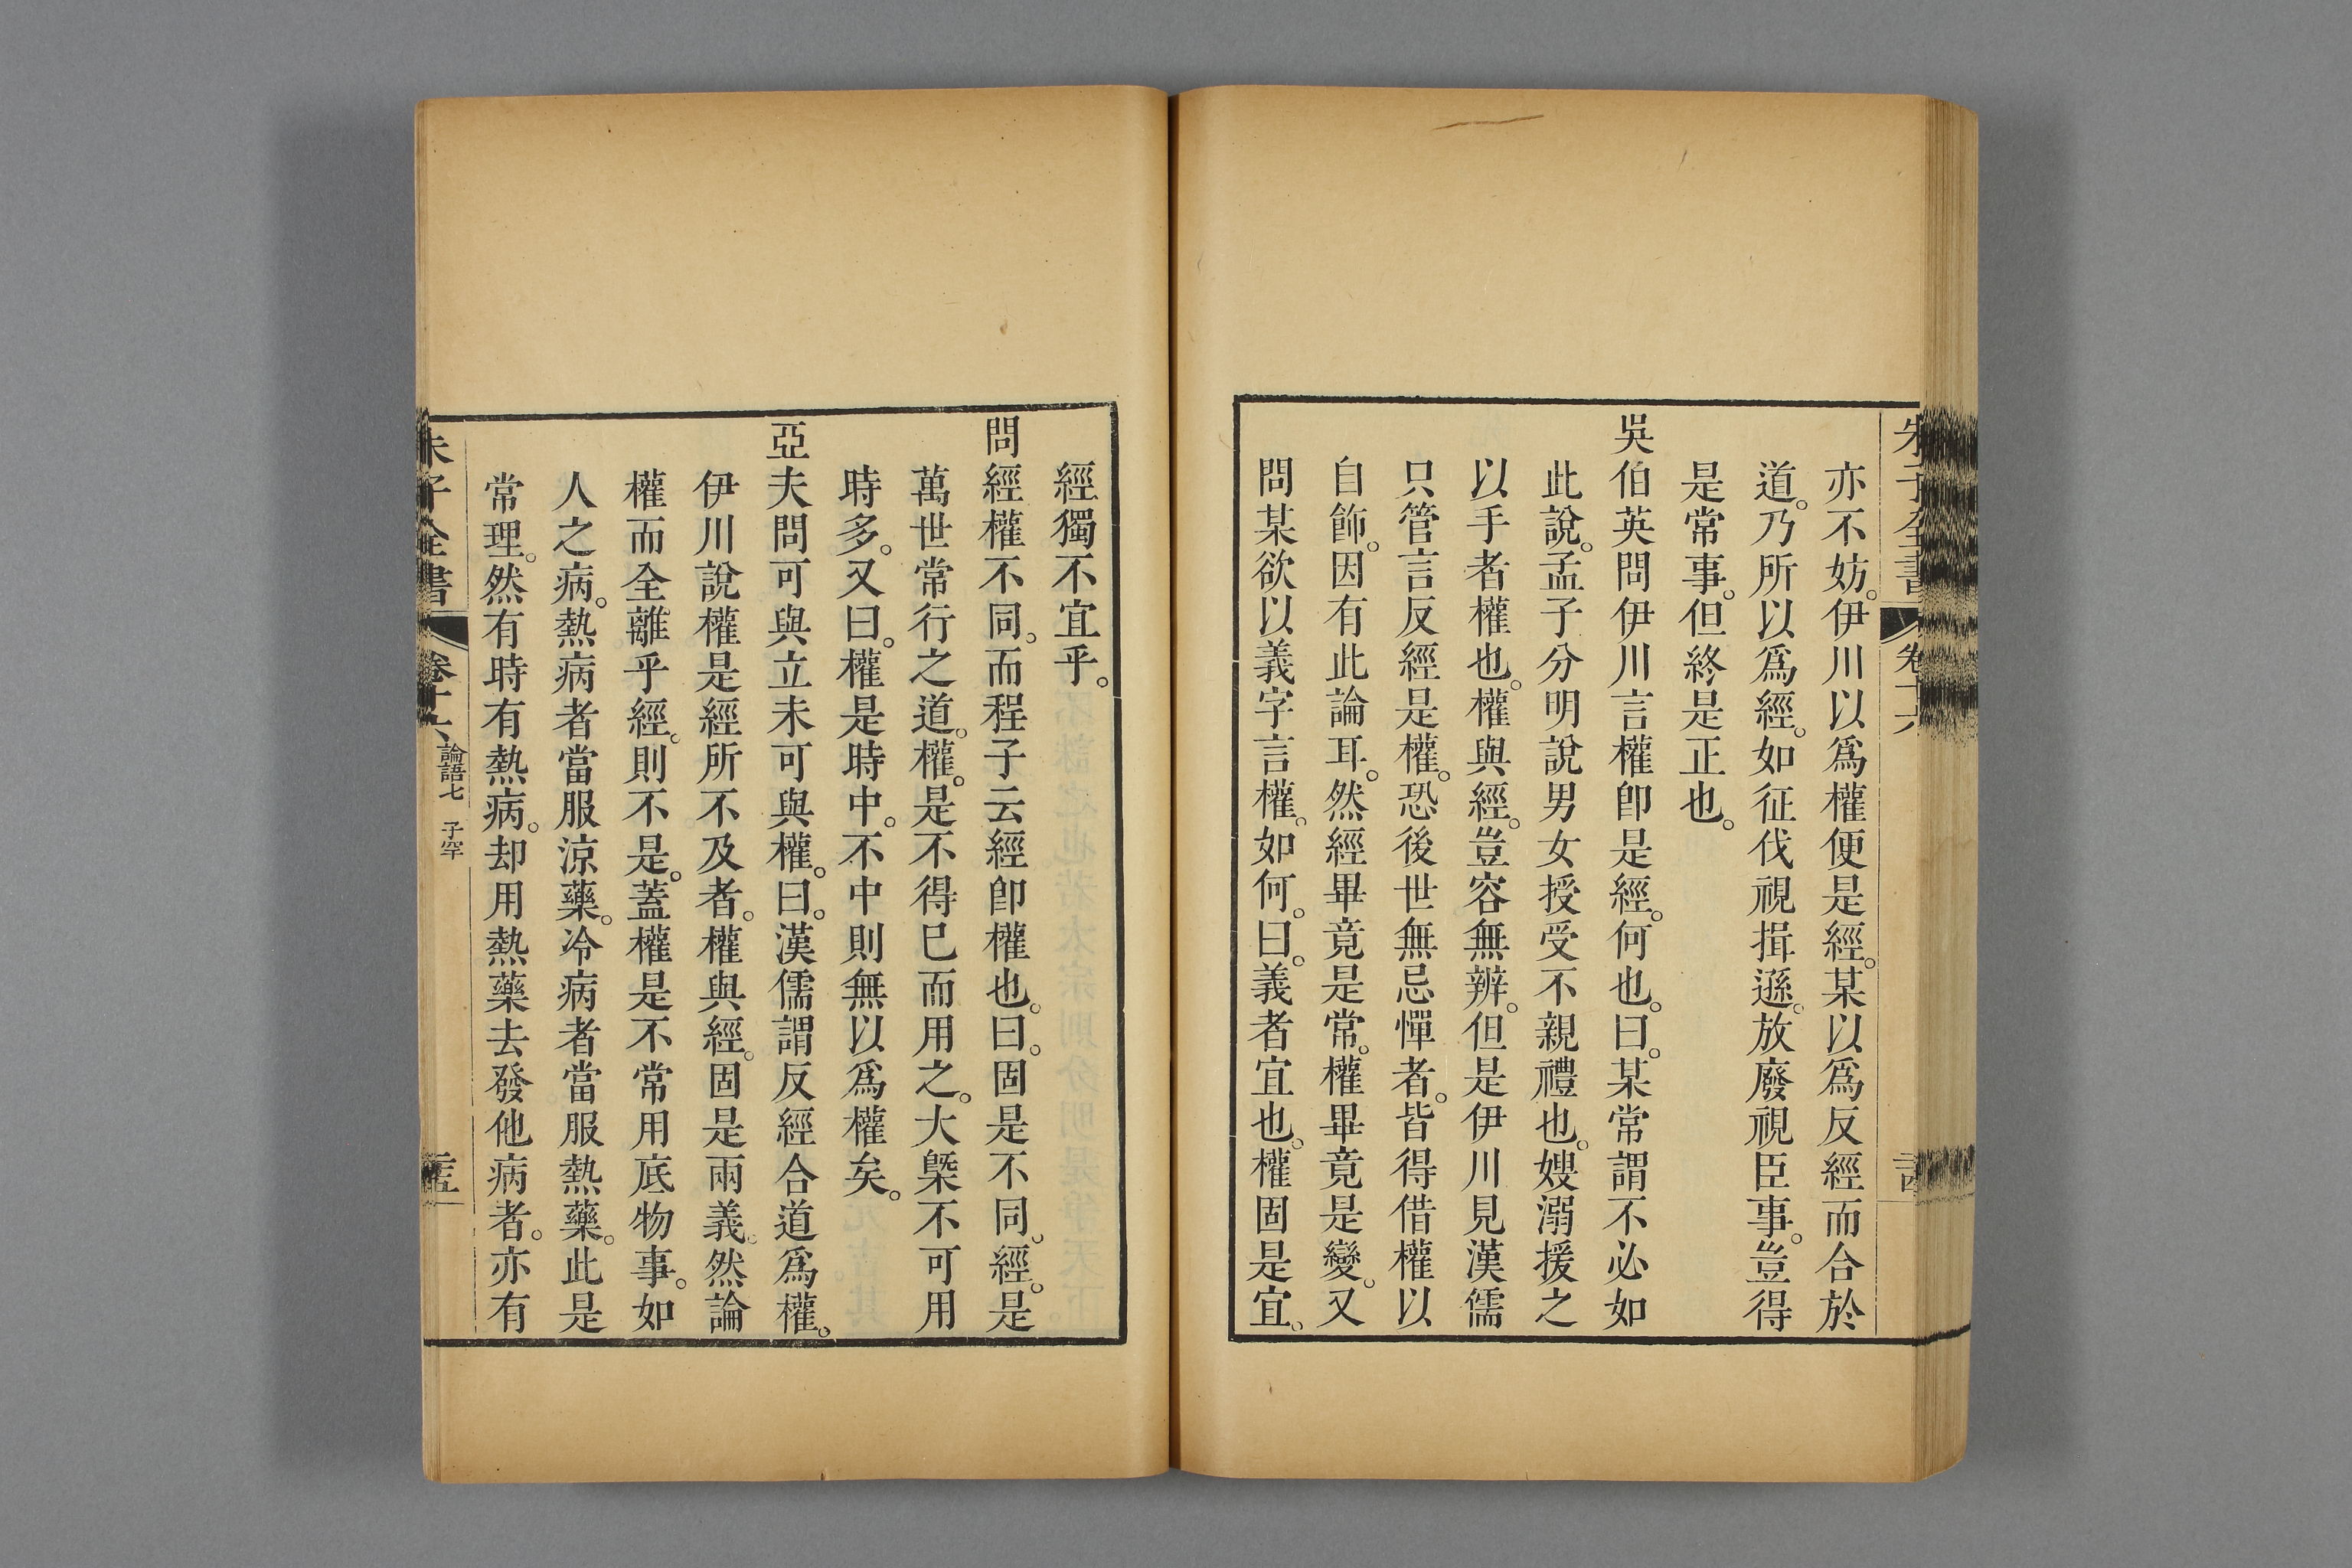 朱子全書 卷十六 二十四
亦不妨。伊川以爲權便是經。某以爲反經而合於
道。乃所以爲經。如征伐視揖遜。放廢視臣事。豈得
是常事。但終是正也。
吳伯英問伊川言權卽是經。何也。曰。某常謂不必如
此說。孟子分明說男女授受不親禮也。嫂溺援之
以手者權也。權與經。豈容無辨。但是伊川見漢儒
只管言反經是權。恐後世無忌憚者。皆得借權以
自飾。因有此論耳。然經畢竟是常。權畢竟是變。又
問某欲以義字言權。如何。曰。義者宜也。權固是宜。
經獨不宜乎。
問經權不同。而程子云經卽權也。曰。固是不同。經。是
萬世常行之道。權。是不得已而用之。大槩不可用
時多。又曰。權是時中。不中則無以爲權矣。
亞夫問可與立未可與權。曰。漢儒謂反經合道爲權。
伊川說權是經所不及者。權與經。固是兩義。然論
權而全離乎經。則不是。蓋權是不常用底物事。如
人之病。熱病者當服涼藥。冷病者當服熱藥。此是
常理。然有時有熱病。却用熱藥去發他病者。亦有
朱子全書 卷十六 論語七 子罕